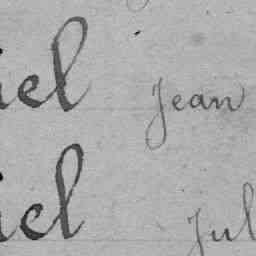 iel Jean
iel Jul